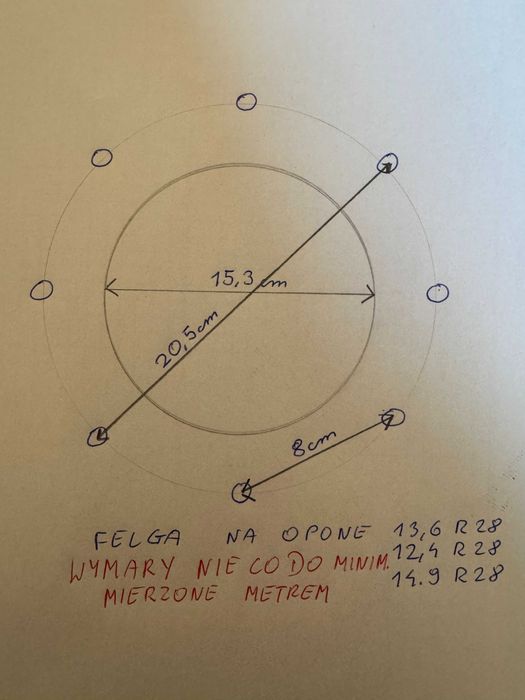 15,3 cm
20,5cm
8cm
FELGA NA OPONE 13,6 R28
12,4 R28
WYMARY NIE CO DO MINIM.
14.9 R28
MIERZONE METREM